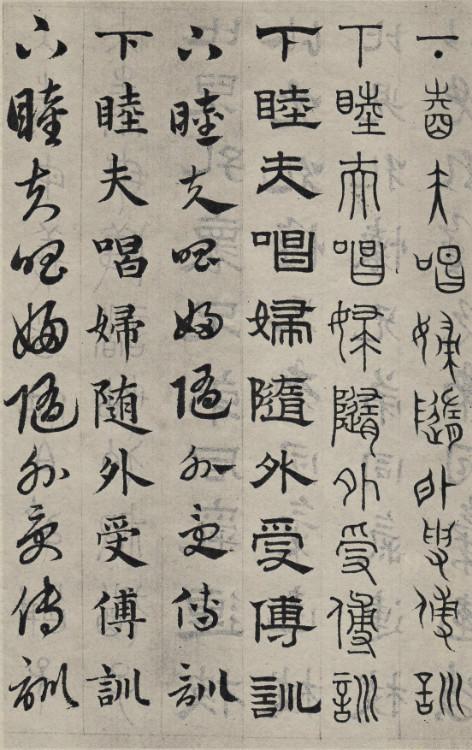 下睦夫唱婦隨外受傅訓
下睦夫唱婦隨外受傅訓
下睦夫唱婦隨外受傅訓
下睦夫唱婦随外受傅訓
下睦夫唱婦随外受傅訓
下睦夫唱婦随外受傅訓